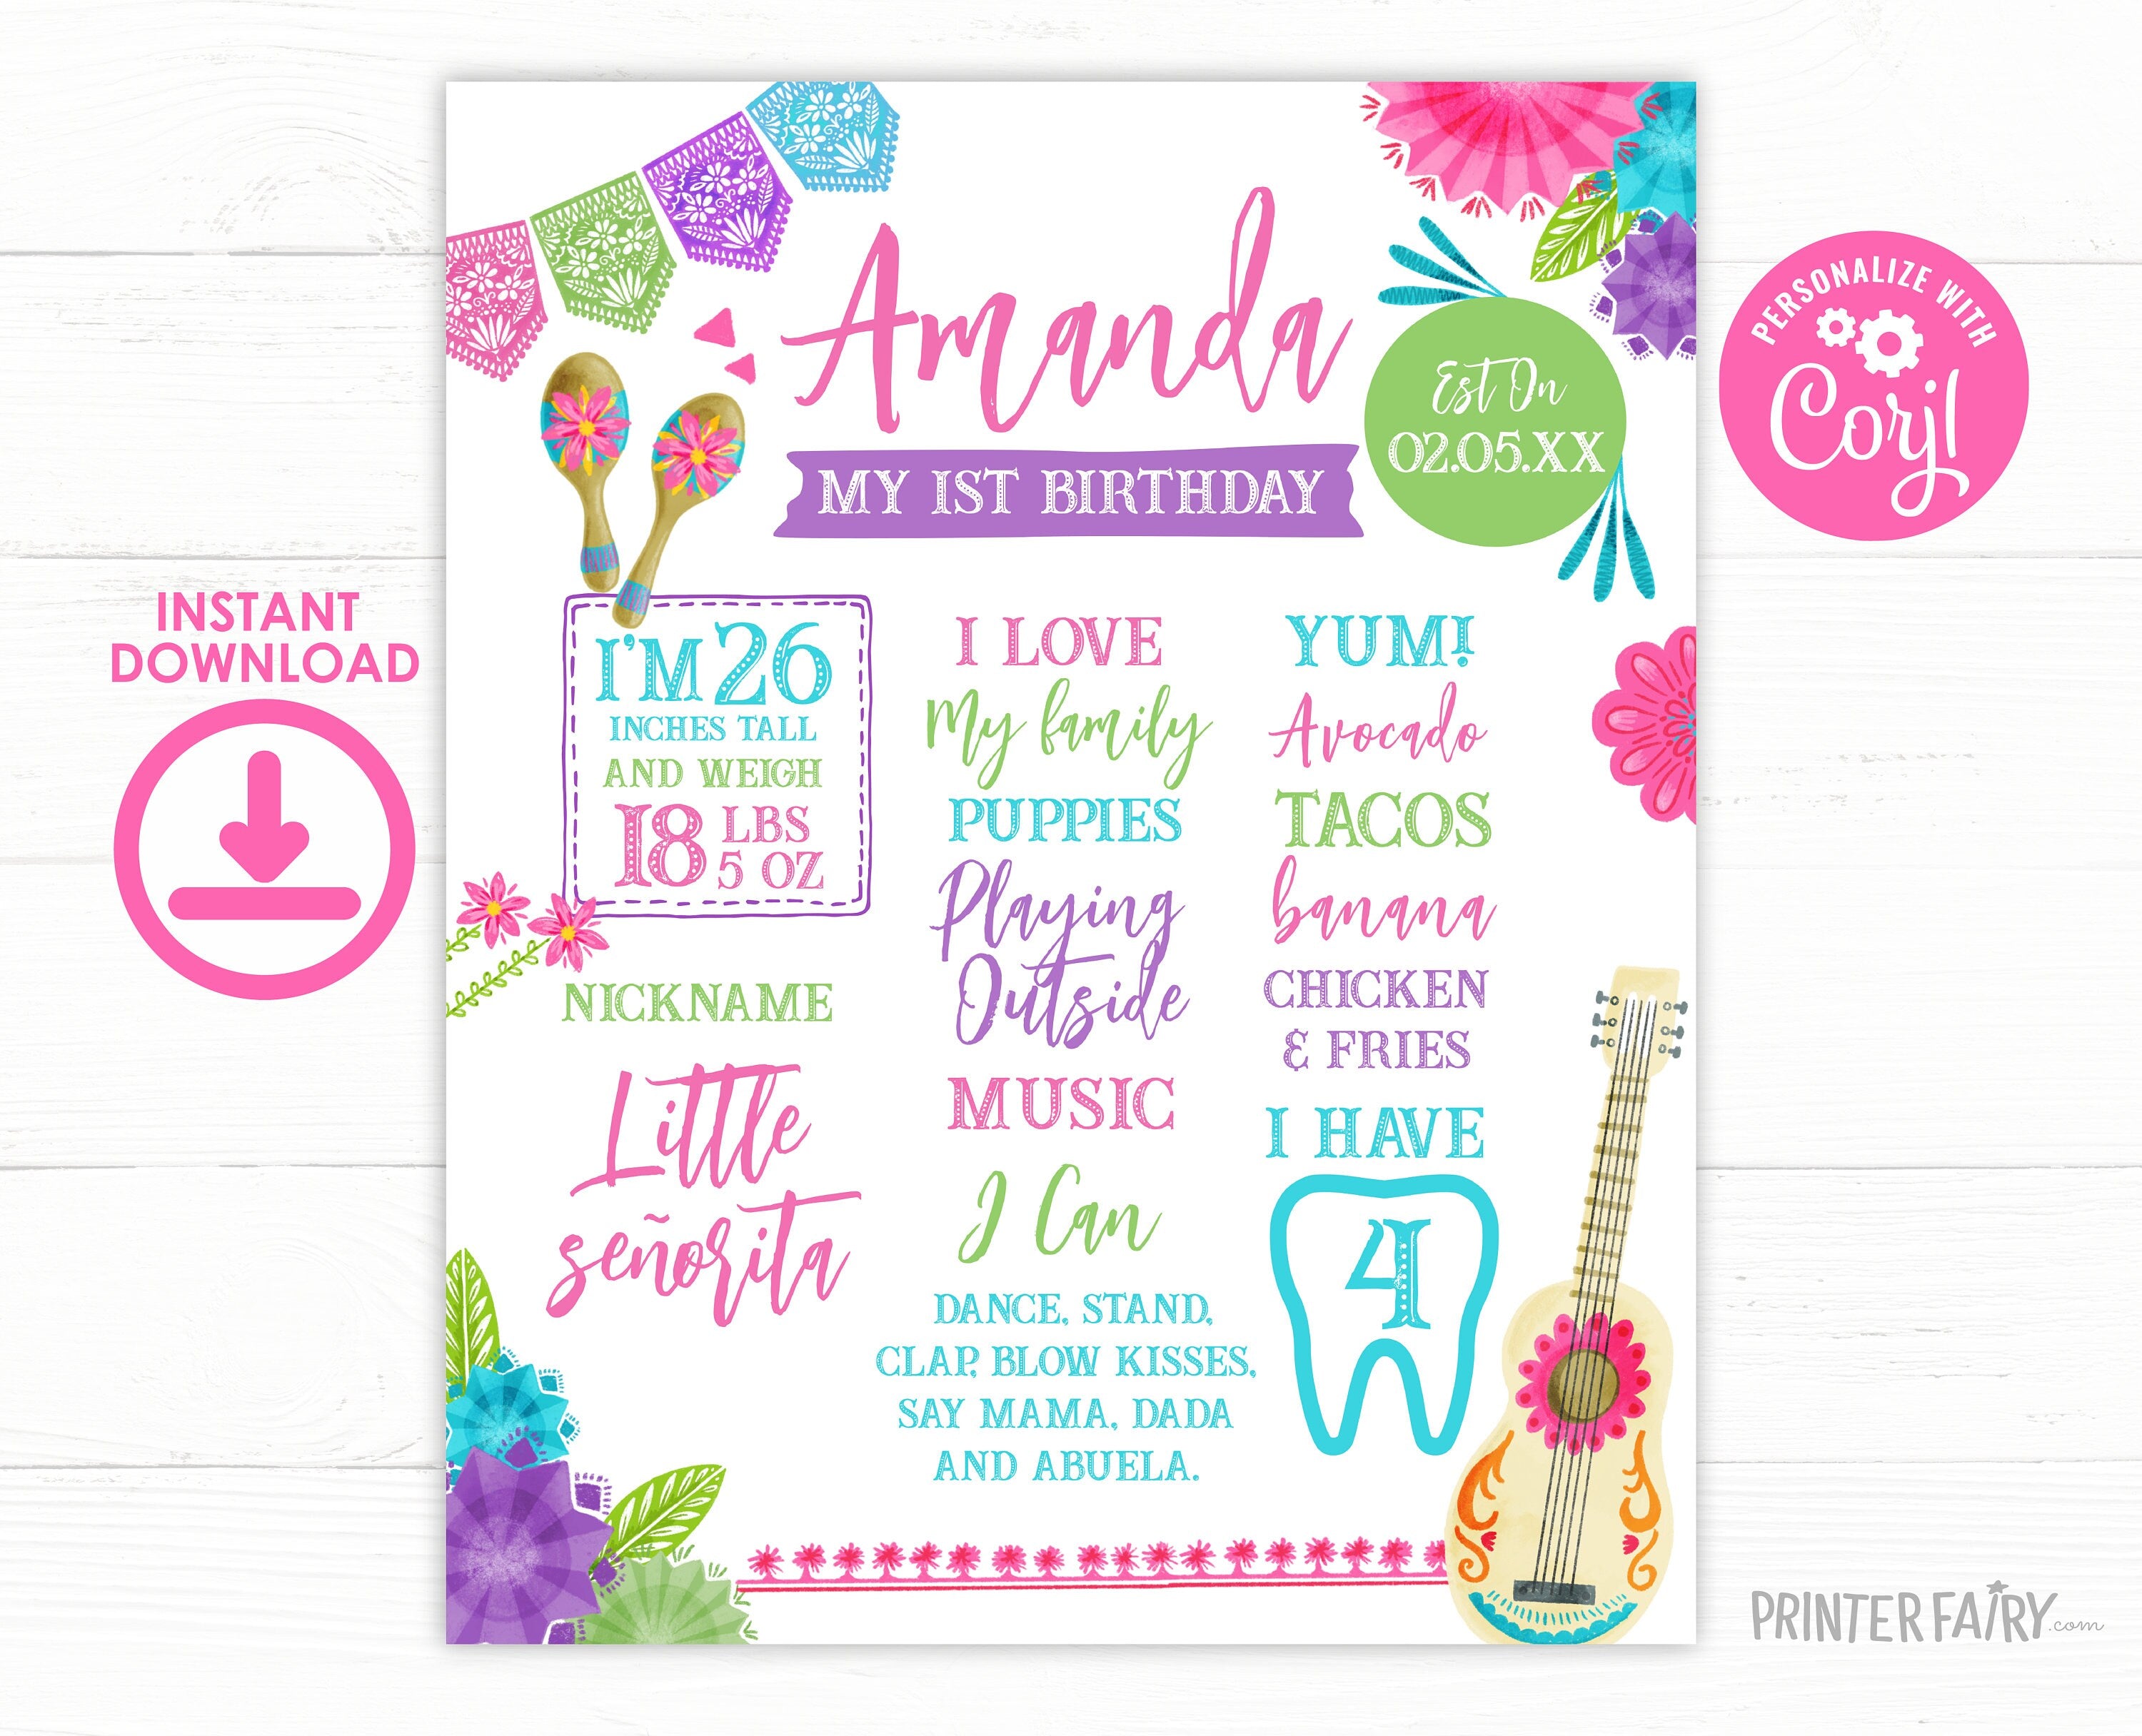 Amanda
MY 1ST BIRTHDAY
Est On
02.05.XX
PERSONALIZE WITH
Corjl
INSTANT
DOWNLOAD
I'M 26
INCHES TALL
AND WEIGH
18 LBS
5 OZ
NICKNAME
Little
señorita
I LOVE
My family
PUPPIES
Playing
Outside
MUSIC
I Can
DANCE, STAND,
CLAP, BLOW KISSES,
SAY MAMA, DADA
AND ABUELA.
YUM!
Avocado
TACOS
banana
CHICKEN
& FRIES
I HAVE
4
PRINTERFAIRY.com